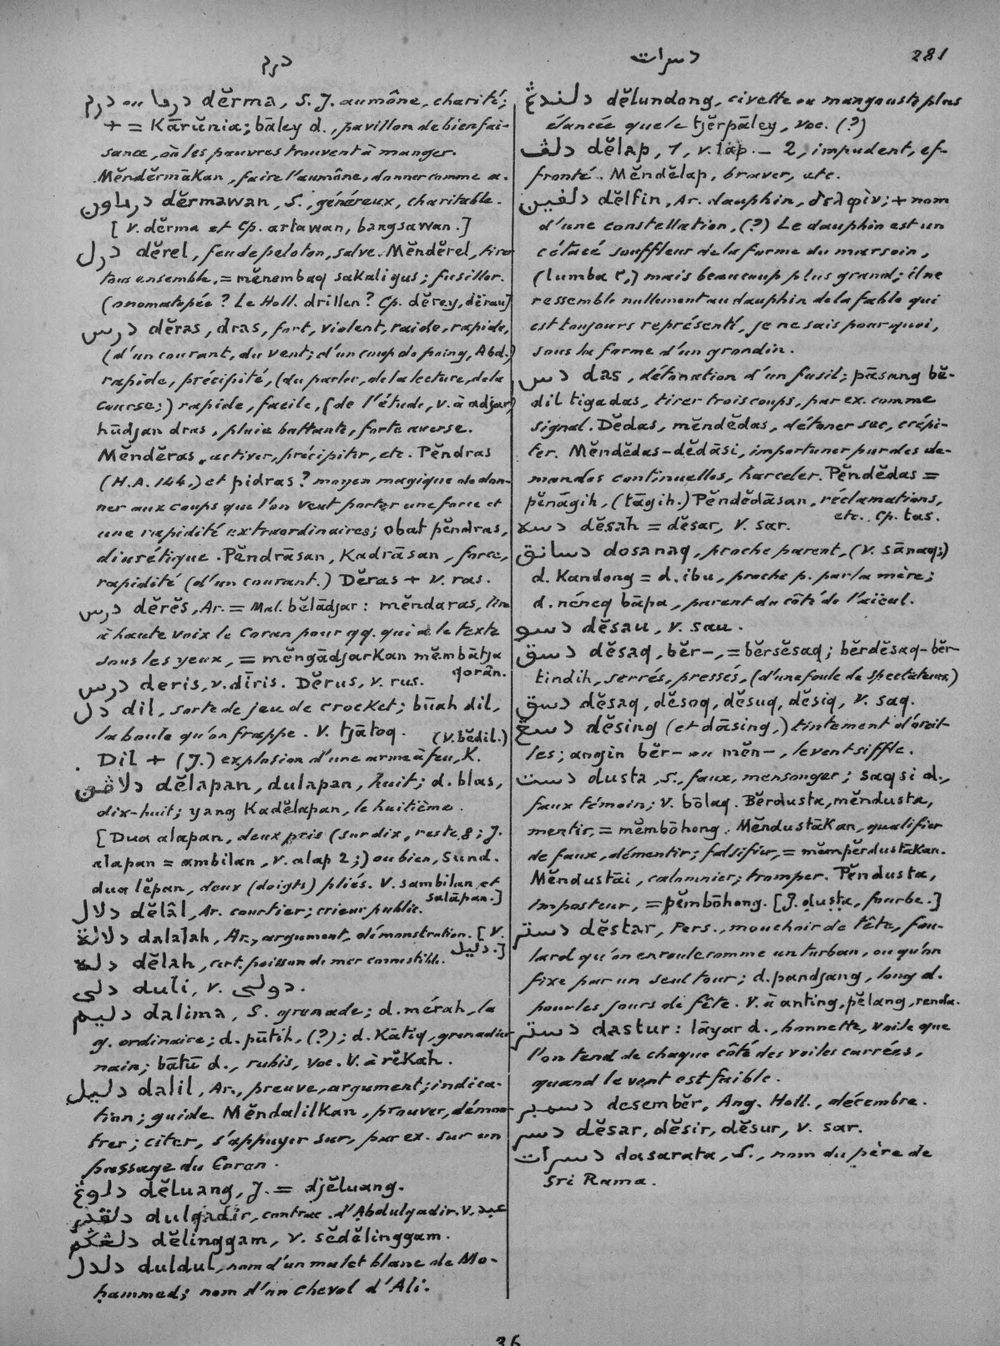 درم
دسرات
281
درم ou درما dĕrma, S. J. aumône, charité;
+ = Kārŭnia; bāley d., pavillon de bienfai-
sance, où les pauvres trouvent à manger.
Mĕndĕrmākan, faire l'aumône, donner comme a.
درماون dĕrmawan, S., généreux, charitable.
[V. dĕrma et Cp. artawan, bangsawan.]
درل dĕrel, feu de peloton, salve. Mĕndĕrel, tirer
tous ensemble, = mĕnembaq sakaligus; fusiller.
(onomatopée? Le Holl. drillen? Cp. dĕrey, dĕrau)
درس dĕras, dras, fort, violent, raide, rapide,
(d'un courant, du vent; d'un coup de poing, Abd.)
rapide, précipité, (du parler, de la lecture, de la
course;) rapide, facile, (de l'étude, V. à adjar)
hūdjan dras, pluie battante, forte averse.
Mĕndĕras, activer, précipiter, etc. Pĕndras
(H.A. 144.) et pidras? moyen magique de don-
ner aux coups que l'on veut porter une force et
une rapidité extraordinaires; obat pĕndras,
diurétique. Pĕndrāsan, Kadrāsan, force,
rapidité (d'un courant.) Dĕras + v. ras.
درس dĕrĕs, Ar. = Mal. bĕlādjar: mĕndaras, lire
à haute voix le Coran pour qq. qui a le texte
sous les yeux, = mĕngādjarkan mĕmbātja
qorān.
درس deris, v. dīris. Dĕrus, v. rus.
دل dil, sorte de jeu de crocket; būah dil,
la boule qu'on frappe. V. tjātoq. (V. bĕdil.)
Dil + (J.) explosion d'une arme à feu, K.
دلاڤن dĕlapan, dulapan, huit; d. blas,
dix-huit; yang Kadĕlapan, le huitième.
[Dua alapan, deux pris (sur dix, reste 8; J.
alapan = ambilan, v. alap 2;) ou bien, Sund.
dua lĕpan, deux (doigts) pliés. V. sambilan et
salāpan.]
دلال dĕlâl, Ar. courtier; crieur public.
دلالة dalalah, Ar., argument, démonstration. [V.
دليل.]
دله dĕlah, cert. poisson de mer comestible.
دلي duli, v. دولي.
دليم dalima, S. grenade; d. mérah, la
g. ordinaire; d. pūtih, (?); d. Kātiq, grenadier
nain; bātū d., rubis, voc. V. à rĕkah.
دليل dalil, Ar., preuve, argument; indica-
tion; guide. Mĕndalilkan, prouver, démon-
trer; citer, s'appuyer sur, par ex. sur un
passage du Coran.
دلوڠ dĕluang, J. = djĕluang.
دلقدر dulqadir, contrac. d'Abdulqadir. V. عبد
دلڠݢم dĕlinggam, v. sĕdĕlinggam.
دلدل duldul, nom d'un mulet blanc de Mo-
hammed; nom d'un cheval d'Ali.
دلندڠ dĕlundong, civette ou mangouste plus
élancée que le tjĕrpāley, voc. (?)
دلڤ dĕlap, 1, v. lāp. – 2, impudent, ef-
fronté. Mĕndĕlap, braver, etc.
دلفين dĕlfin, Ar. dauphin, δελφίν; + nom
d'une constellation, (?) Le dauphin est un
cétacé souffleur de la forme du marsoin,
(lumba ٢,) mais beaucoup plus grand; il ne
ressemble nullement au dauphin de la fable qui
est toujours représenté, je ne sais pourquoi,
sous la forme d'un grondin.
دس das, détonation d'un fusil; pāsang bĕ-
dil tigadas, tirer trois coups, par ex. comme
signal. Dĕdas, mĕndĕdas, détoner sec, crépi-
ter. Mĕndĕdas-dĕdāsi, importuner par des de-
mandes continuelles, harceler. Pĕndĕdas =
pĕnāgih, (tāgih.) Pĕndĕdāsan, réclamations,
etc. Cp. tas.
دسه dĕsah = dĕsar, V. sar.
دسانق dosanaq, proche parent, (V. sānaq;)
d. Kandong = d. ibu, proche p. par la mère;
d. néneq bāpa, parent du côté de l'aïeul.
دسو dĕsau, V. sau.
دسق dĕsaq, bĕr–, = bĕrsĕsaq; bĕrdĕsaq-bĕr-
tindih, serrés, pressés, (d'une foule de spectateurs)
دسق dĕsaq, dĕsoq, dĕsuq, dĕsiq, V. saq.
دسڠ dĕsing (et dāsing,) tintement d'oreil-
les; angin bĕr– ou mĕn–, le vent siffle.
دست dusta, S., faux, mensonger; saqsi d.,
faux témoin; V. bōlaq. Bĕrdusta, mĕndusta,
mentir, = mĕmbōhong. Mĕndustākan, qualifier
de faux, démentir; falsifier, = mĕmpĕrdustākan.
Mĕndustāi, calomnier; tromper. Pĕndusta,
imposteur, = pĕmbōhong. [J. ḍusṭa, fourbe.]
دستر dĕstar, Pers., mouchoir de tête, fou-
lard qu'on enroule comme un turban, ou qu'on
fixe par un seul tour; d. pandjang, long d.
pour les jours de fête. V. à anting, pĕlang, renda.
دستر dastur: lāyar d., bonnette, voile que
l'on tend de chaque côté des voiles carrées,
quand le vent est faible.
دسمبر desembĕr, Ang. Holl., décembre.
دسر dĕsar, dĕsir, dĕsur, V. sar.
دسرات dasarata, S., nom du père de
Sri Rama.
36